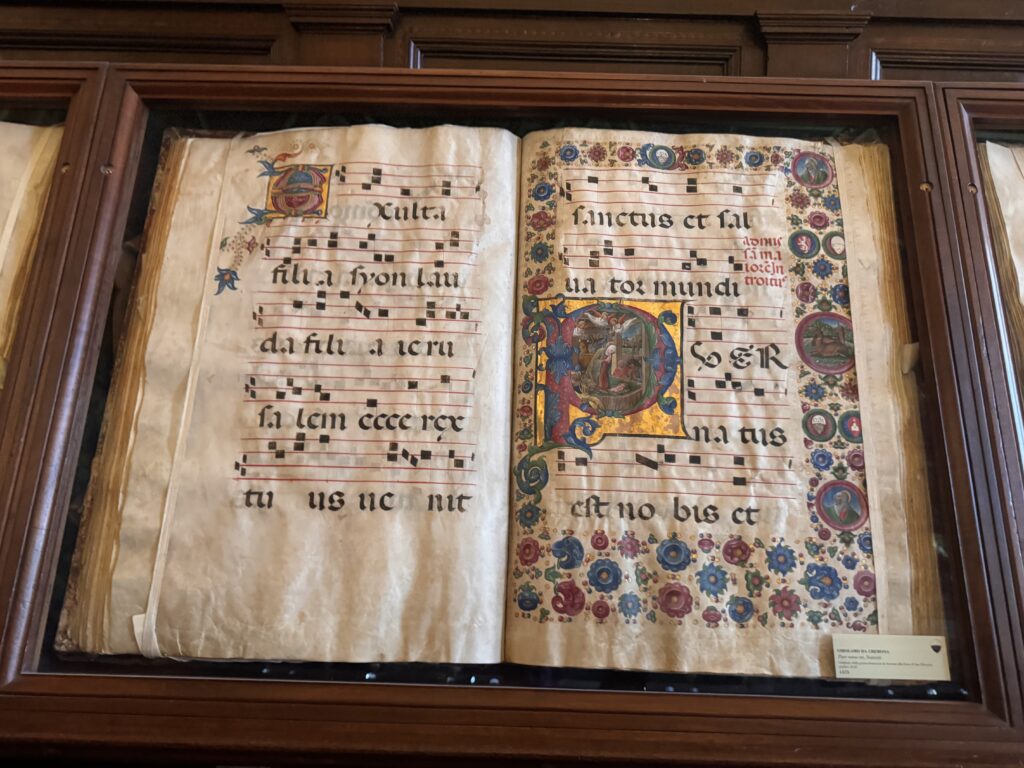 Xulta
filia syon lau
da filia ieru
salem ecce rex
tuus ue nit
sanctus et sal
ua tor mundi
ad mis
troitus
VER
na tus
est no bis et
GIROLAMO DA CREMONA
1473